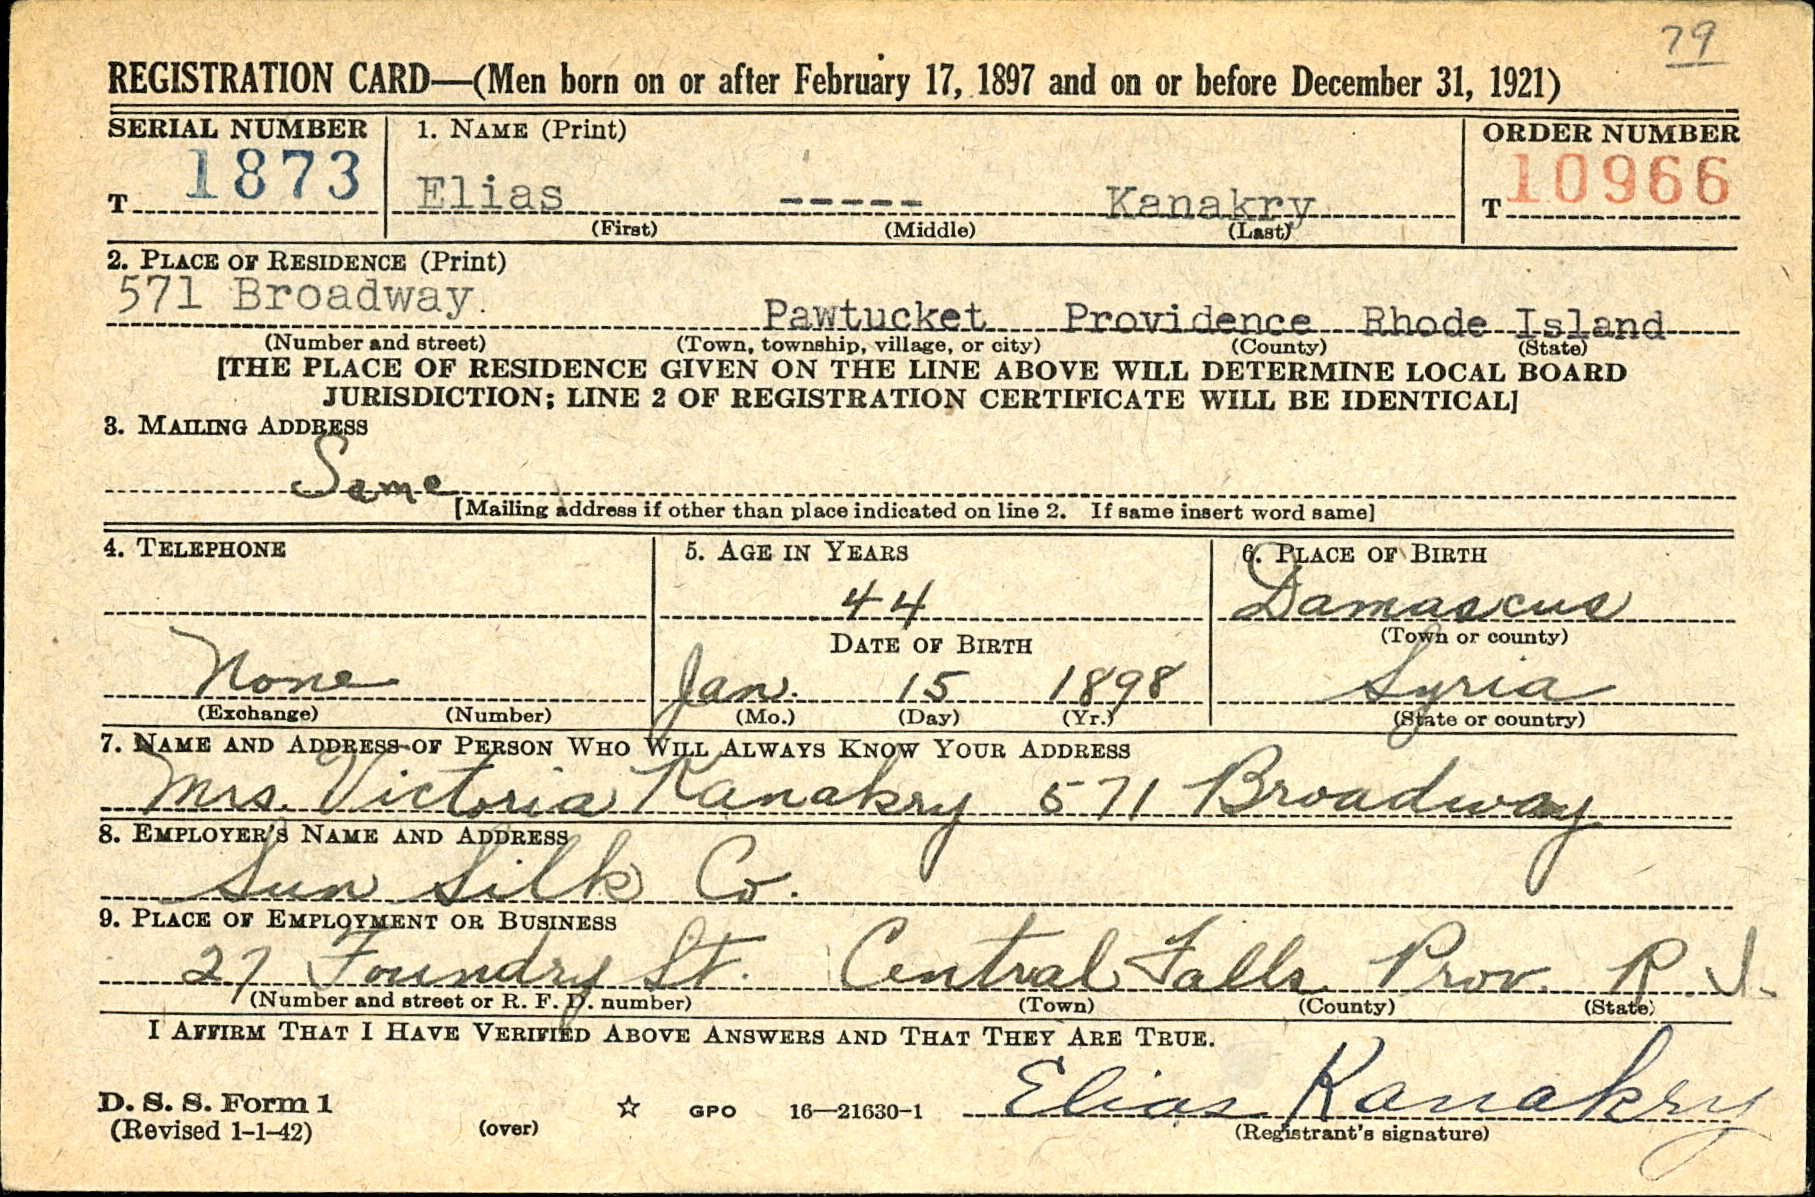 79
REGISTRATION CARD—(Men born on or after February 17, 1897 and on or before December 31, 1921)
SERIAL NUMBER 1. NAME (Print) ORDER NUMBER
T 1873 Elias ----- Kanakry T 10966
(First) (Middle) (Last)
2. PLACE OF RESIDENCE (Print)
571 Broadway. Pawtucket Providence Rhode Island
(Number and street) (Town, township, village, or city) (County) (State)
[THE PLACE OF RESIDENCE GIVEN ON THE LINE ABOVE WILL DETERMINE LOCAL BOARD
JURISDICTION; LINE 2 OF REGISTRATION CERTIFICATE WILL BE IDENTICAL]
3. MAILING ADDRESS
Same
[Mailing address if other than place indicated on line 2. If same insert word same]
4. TELEPHONE 5. AGE IN YEARS 6. PLACE OF BIRTH
44 Damascus
DATE OF BIRTH (Town or county)
None Jan. 15 1898 Syria
(Exchange) (Number) (Mo.) (Day) (Yr.) (State or country)
7. NAME AND ADDRESS OF PERSON WHO WILL ALWAYS KNOW YOUR ADDRESS
Mrs. Victoria Kanakry 571 Broadway
8. EMPLOYER'S NAME AND ADDRESS
Sun Silk Co.
9. PLACE OF EMPLOYMENT OR BUSINESS
27 Foundry St. Central Falls Prov. R.I.
(Number and street or R. F. D. number) (Town) (County) (State)
I AFFIRM THAT I HAVE VERIFIED ABOVE ANSWERS AND THAT THEY ARE TRUE.
Elias Kanakry
D. S. S. Form 1
(Revised 1-1-42) (over) ☆ GPO 16—21630-1 (Registrant's signature)